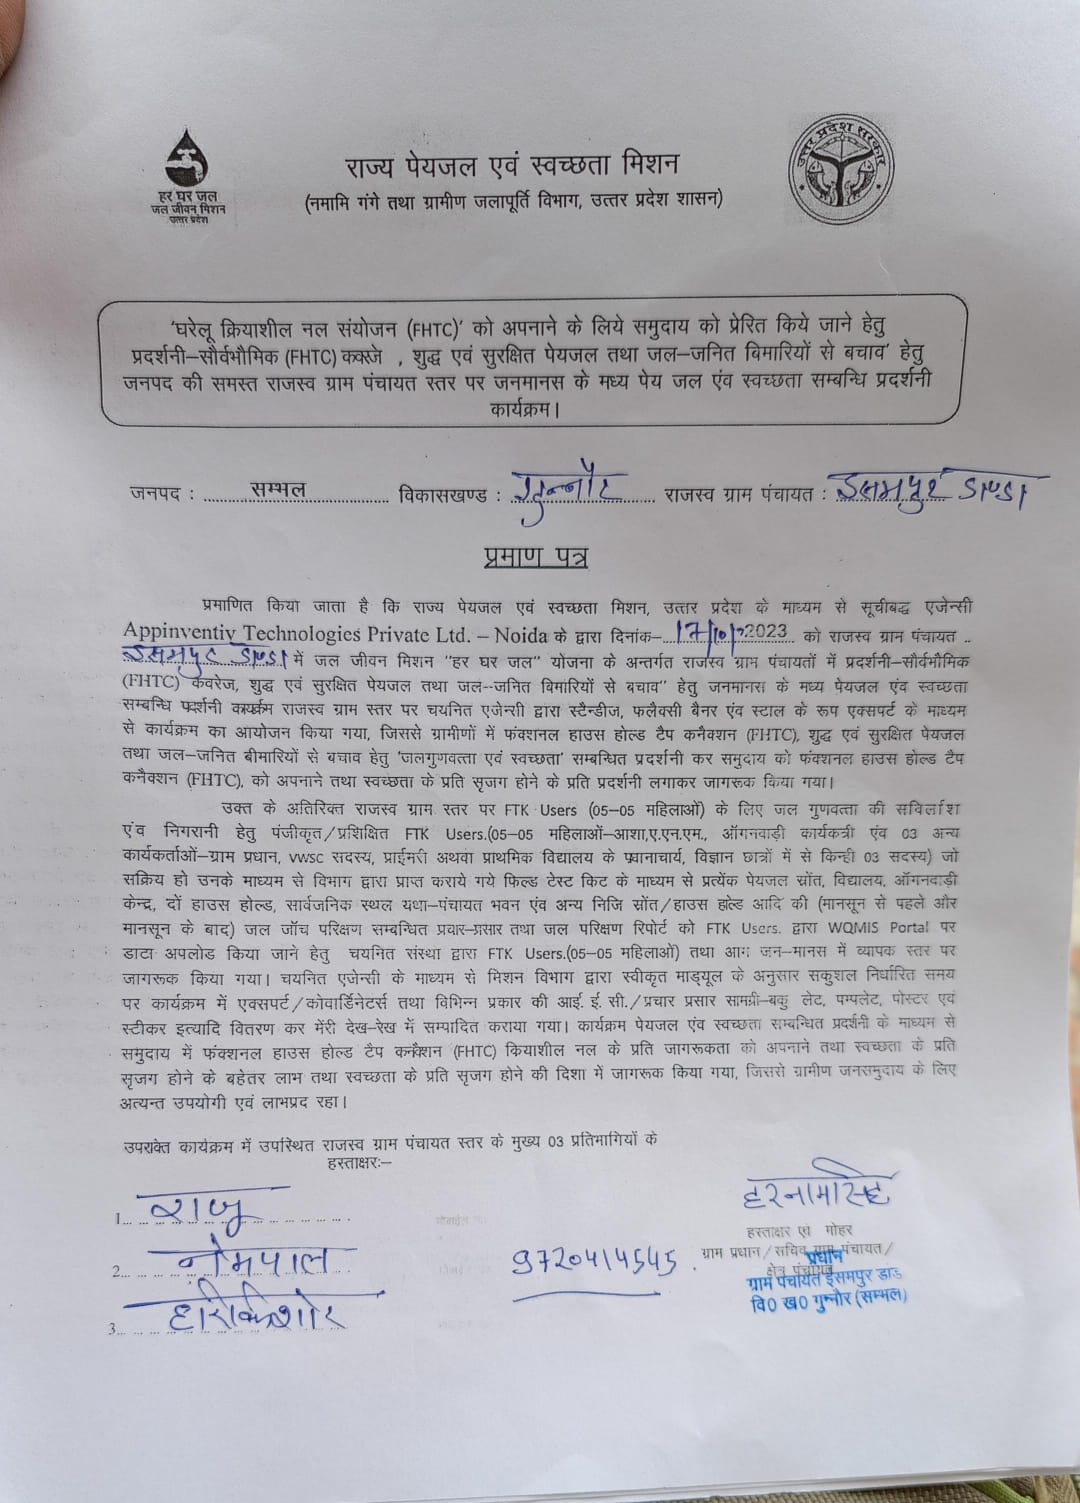 हर घर जल
जल जीवन मिशन
उत्तर प्रदेश
राज्य पेयजल एवं स्वच्छता मिशन
(नमामि गंगे तथा ग्रामीण जलापूर्ति विभाग, उत्तर प्रदेश शासन)
उत्तर प्रदेश सरकार
'घरेलू क्रियाशील नल संयोजन (FHTC)' को अपनाने के लिये समुदाय को प्रेरित किये जाने हेतु
प्रदर्शनी–सौर्वभौमिक (FHTC) कक्जे , शुद्ध एवं सुरक्षित पेयजल तथा जल–जनित बिमारियों से बचाव' हेतु
जनपद की समस्त राजस्व ग्राम पंचायत स्तर पर जनमानस के मध्य पेय जल एंव स्वच्छता सम्बन्धि प्रदर्शनी
कार्यक्रम।
जनपद : सम्भल विकासखण्ड : गुन्नौर राजस्व ग्राम पंचायत : इसमपुर डाण्डा
प्रमाण पत्र
प्रमाणित किया जाता है कि राज्य पेयजल एवं स्वच्छता मिशन, उत्तर प्रदेश के माध्यम से सूचीबद्ध एजेन्सी
Appinventiv Technologies Private Ltd. – Noida के द्वारा दिनांक– 17/10/2023 को राजस्व ग्राम पंचायत ..
इसमपुर डाण्डा में जल जीवन मिशन "हर घर जल" योजना के अन्तर्गत राजस्व ग्राम पंचायतों में प्रदर्शनी–सौर्वभौमिक
(FHTC) कवरेज, शुद्ध एवं सुरक्षित पेयजल तथा जल--जनित बिमारियों से बचाव" हेतु जनमानस के मध्य पेयजल एंव स्वच्छता
सम्बन्धि प्रदर्शनी कार्यक्रम राजस्व ग्राम स्तर पर चयनित एजेन्सी द्वारा स्टैन्डीज, फलैक्सी बैनर एंव स्टाल के रूप एक्सपर्ट के माध्यम
से कार्यक्रम का आयोजन किया गया, जिससे ग्रामीणों में फंक्शनल हाउस होल्ड टैप कनैक्शन (FHTC), शुद्ध एवं सुरक्षित पेयजल
तथा जल–जनित बीमारियों से बचाव हेतु 'जलगुणवत्ता एवं स्वच्छता' सम्बन्धित प्रदर्शनी कर समुदाय को फंक्शनल हाउस होल्ड टैप
कनैक्शन (FHTC), को अपनाने तथा स्वच्छता के प्रति सृजग होने के प्रति प्रदर्शनी लगाकर जागरूक किया गया।
उक्त के अतिरिक्त राजस्व ग्राम स्तर पर FTK Users (05–05 महिलाओं) के लिए जल गुणवत्ता की सर्विलांश
एंव निगरानी हेतु पंजीकृत/प्रशिक्षित FTK Users.(05–05 महिलाओं–आशा,ए.एन.एम., ऑगनवाड़ी कार्यकत्री एंव 03 अन्य
कार्यकर्ताओं–ग्राम प्रधान, vwsc सदस्य, प्राईमरी अथवा प्राथमिक विद्यालय के प्रधानाचार्य, विज्ञान छात्रों में से किन्ही 03 सदस्य) जो
सक्रिय हो उनके माध्यम से विभाग द्वारा प्राप्त कराये गये फिल्ड टेस्ट किट के माध्यम से प्रत्येंक पेयजल स्रोंत, विद्यालय, ऑगनवाड़ी
केन्द्र, दों हाउस होल्ड, सार्वजनिक स्थल यथा–पंचायत भवन एंव अन्य निजि स्रोंत/हाउस होल्ड आदि की (मानसून से पहले और
मानसून के बाद) जल जॉच परिक्षण सम्बन्धित प्रचार–प्रसार तथा जल परिक्षण रिपोर्ट को FTK Users. द्वारा WQMIS Portal पर
डाटा अपलोड किया जाने हेतु चयनित संस्था द्वारा FTK Users.(05–05 महिलाओं) तथा आम जन–मानस में व्यापक स्तर पर
जागरूक किया गया। चयनित एजेन्सी के माध्यम से मिशन विभाग द्वारा स्वीकृत माड्यूल के अनुसार सकुशल निर्धारित समय
पर कार्यक्रम में एक्सपर्ट/कोवार्डिनेटर्स तथा विभिन्न प्रकार की आई. ई. सी./प्रचार प्रसार सामग्री–बकु लेट, पम्पलेट, पोस्टर एवं
स्टीकर इत्यादि वितरण कर मेंरी देख–रेख में सम्पादित कराया गया। कार्यक्रम पेयजल एंव स्वच्छता सम्बन्धित प्रदर्शनी के माध्यम से
समुदाय में फंक्शनल हाउस होल्ड टैप कनैक्शन (FHTC) कियाशील नल के प्रति जागरूकता को अपनाने तथा स्वच्छता के प्रति
सृजग होने के बहेतर लाभ तथा स्वच्छता के प्रति सृजग होने की दिशा में जागरूक किया गया, जिससे ग्रामीण जनसमुदाय के लिए
अत्यन्त उपयोगी एवं लाभप्रद रहा।
उपरोक्त कार्यक्रम में उपस्थित राजस्व ग्राम पंचायत स्तर के मुख्य 03 प्रतिभागियों के
हस्ताक्षरः–
1. राजू
2. नेमपाल 9720414545
3. हरिकिशोर
हरनामसिंह
हस्ताक्षर एवं मोहर
ग्राम प्रधान/सचिव ग्राम पंचायत/
क्षेत्र पंचायत
प्रधान
ग्राम पंचायत ईसमपुर डांड
वि0 ख0 गुन्नौर (सम्भल)